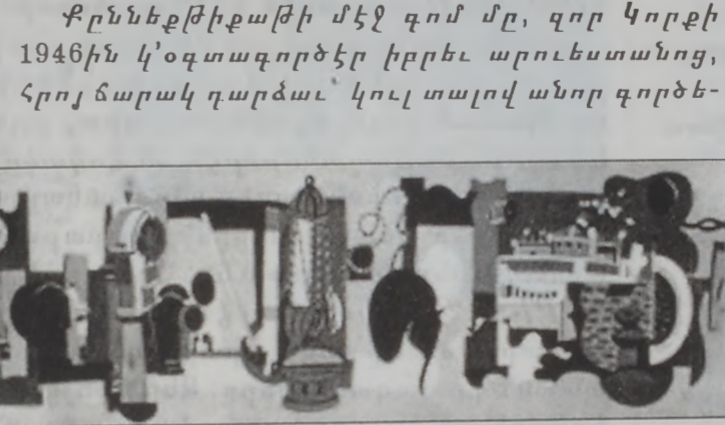 Քըննեքթիքաթի մէջ գոմ մը, զոր Կորքի
1946ին կ՚օգտագործէր իբրեւ արուեստանոց,
հրոյ ճարակ դարձաւ կուլ տալով անոր գործե-